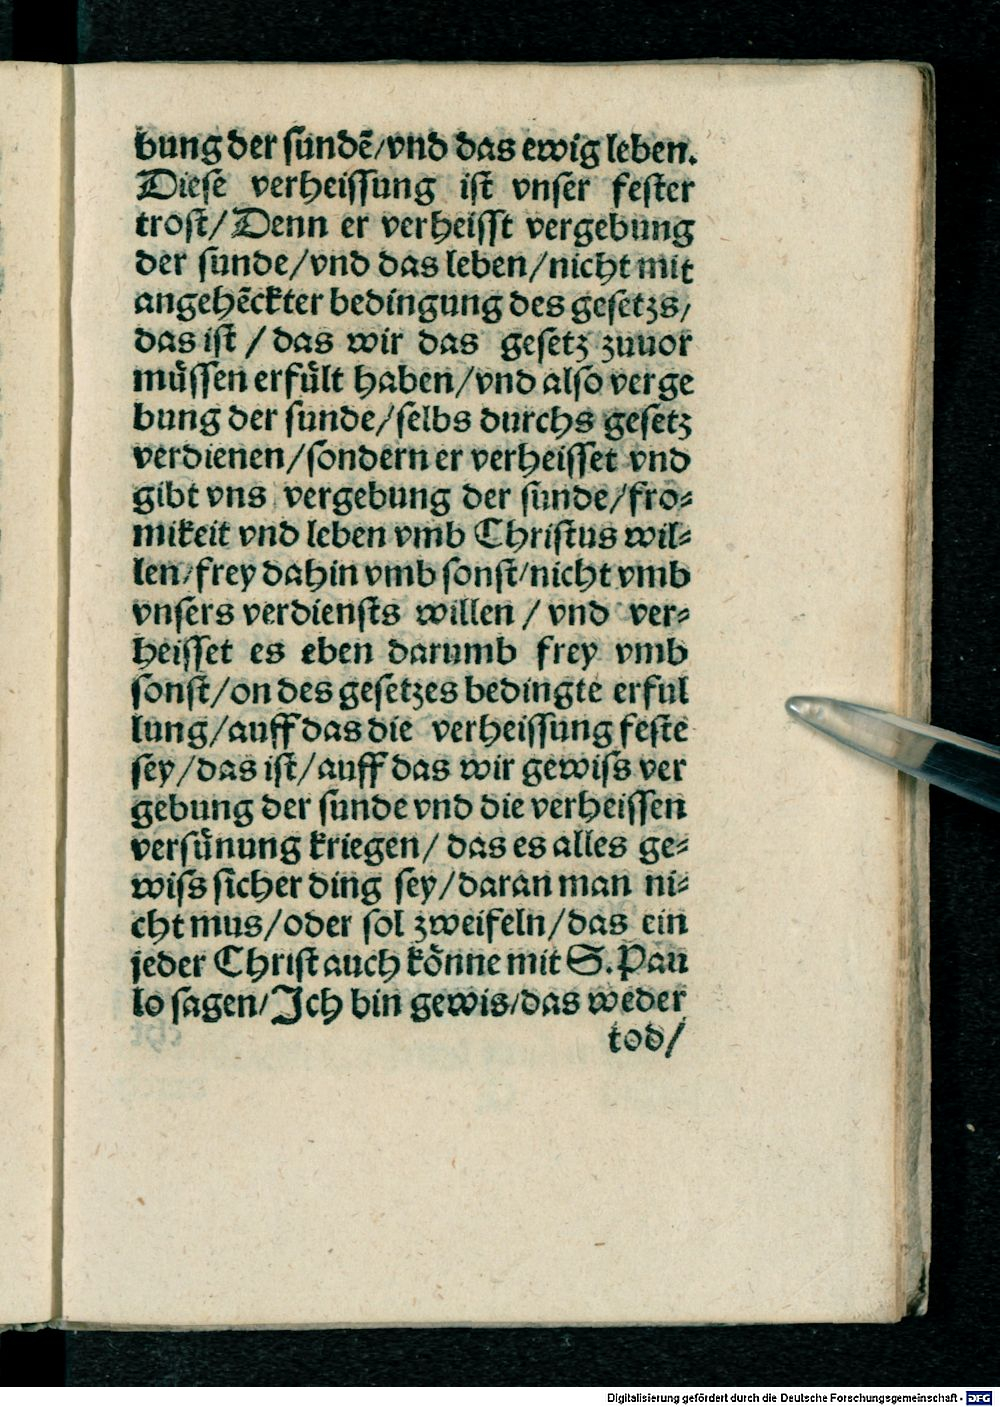 bung der sundē/vnd das ewig leben.
Diese verheissung ist vnser fester
trost/Denn er verheisst vergebung
der sunde/vnd das leben/nicht mit
angehēckter bedingung des gesetzs/
das ist / das wir das gesetz zuuor
müssen erfült haben/vnd also verge
bung der sunde/selbs durchs gesetz
verdienen/sondern er verheisset vnd
gibt vns vergebung der sunde/fro-
mikeit vnd leben vmb Christus wil-
len/frey dahin vmb sonst/nicht vmb
vnsers verdiensts willen / vnd ver-
heisset es eben darumb frey vmb
sonst/on des gesetzes bedingte erful
lung/auff das die verheissung feste
sey/das ist/auff das wir gewiss ver
gebung der sunde vnd die verheissen
versünung kriegen/ das es alles ge-
wiss sicher ding sey/daran man ni-
cht mus/oder sol zweifeln/das ein
jeder Christ auch könne mit S.Pau
lo sagen/Ich bin gewis/das weder
tod/
Digitalisierung gefördert durch die Deutsche Forschungsgemeinschaft - DFG